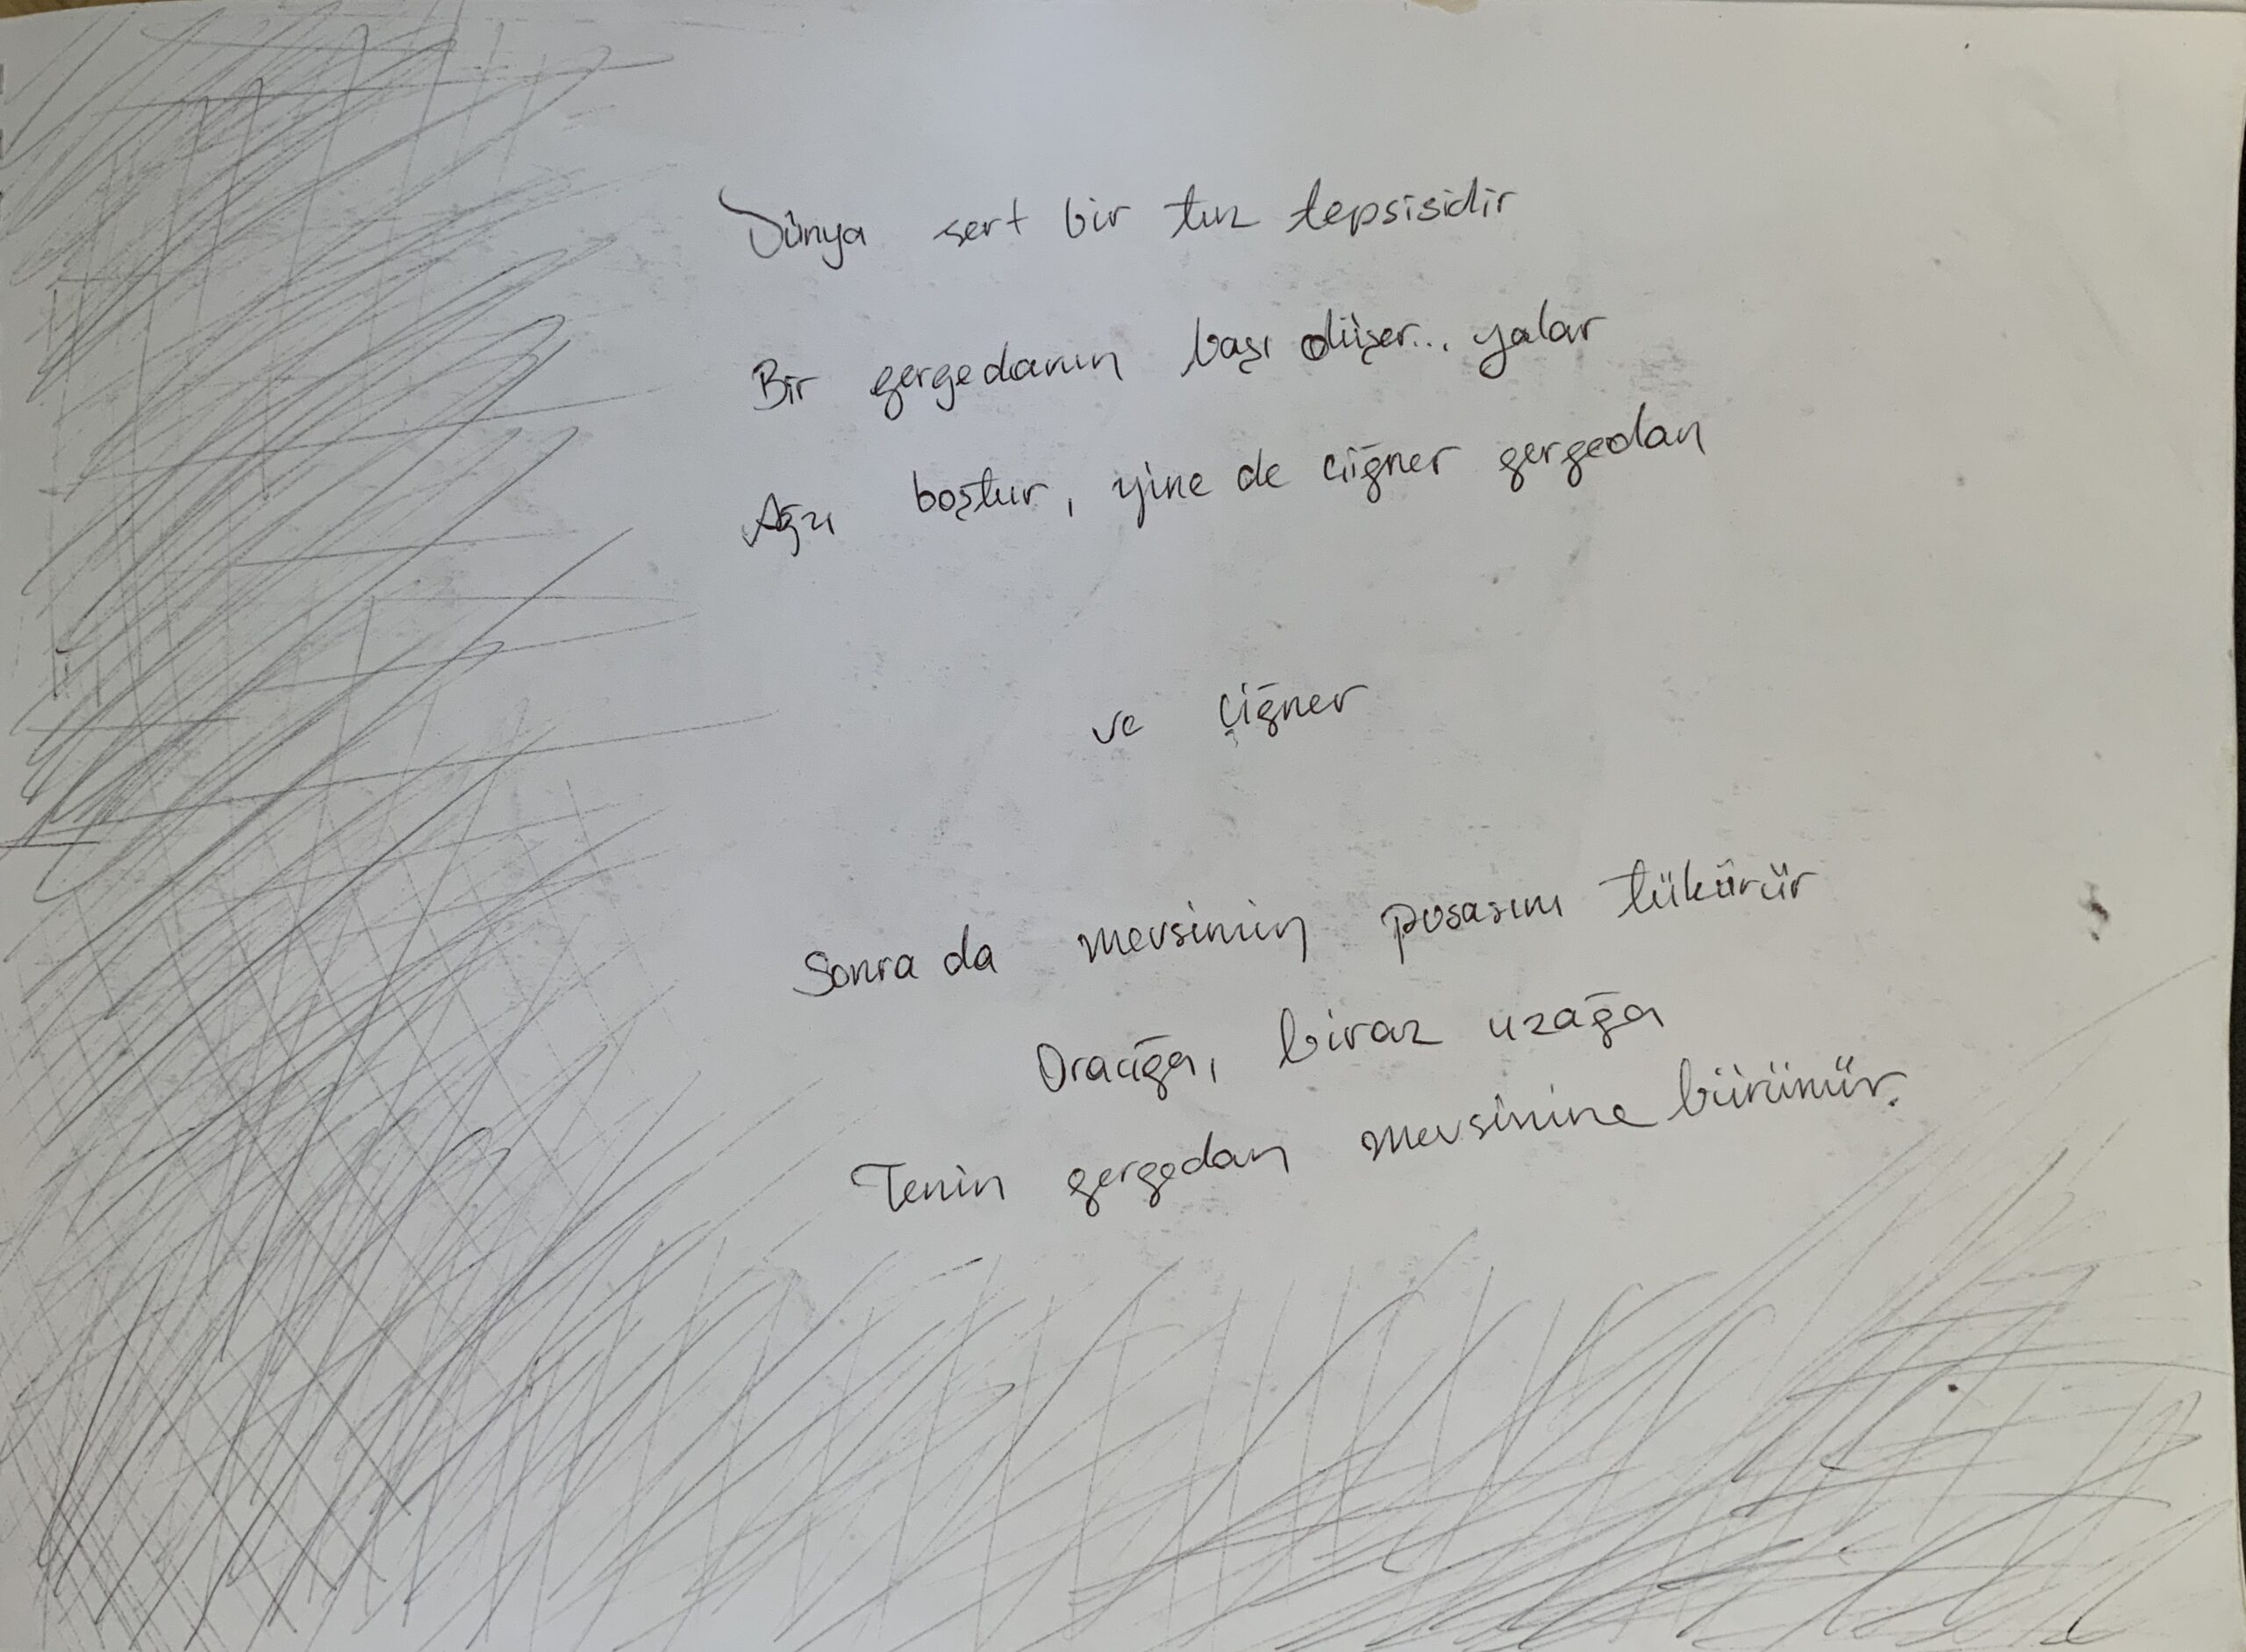 Dünya sert bir tuz tepsisidir
Bir gergedanın başı düşer... yalar
Ağzı boştur, yine de çiğner gergedan
ve çiğner
Sonra da mevsimin posasını tükürür
Oracığa, biraz uzağa
Tenin gergedan mevsimine bürünür.